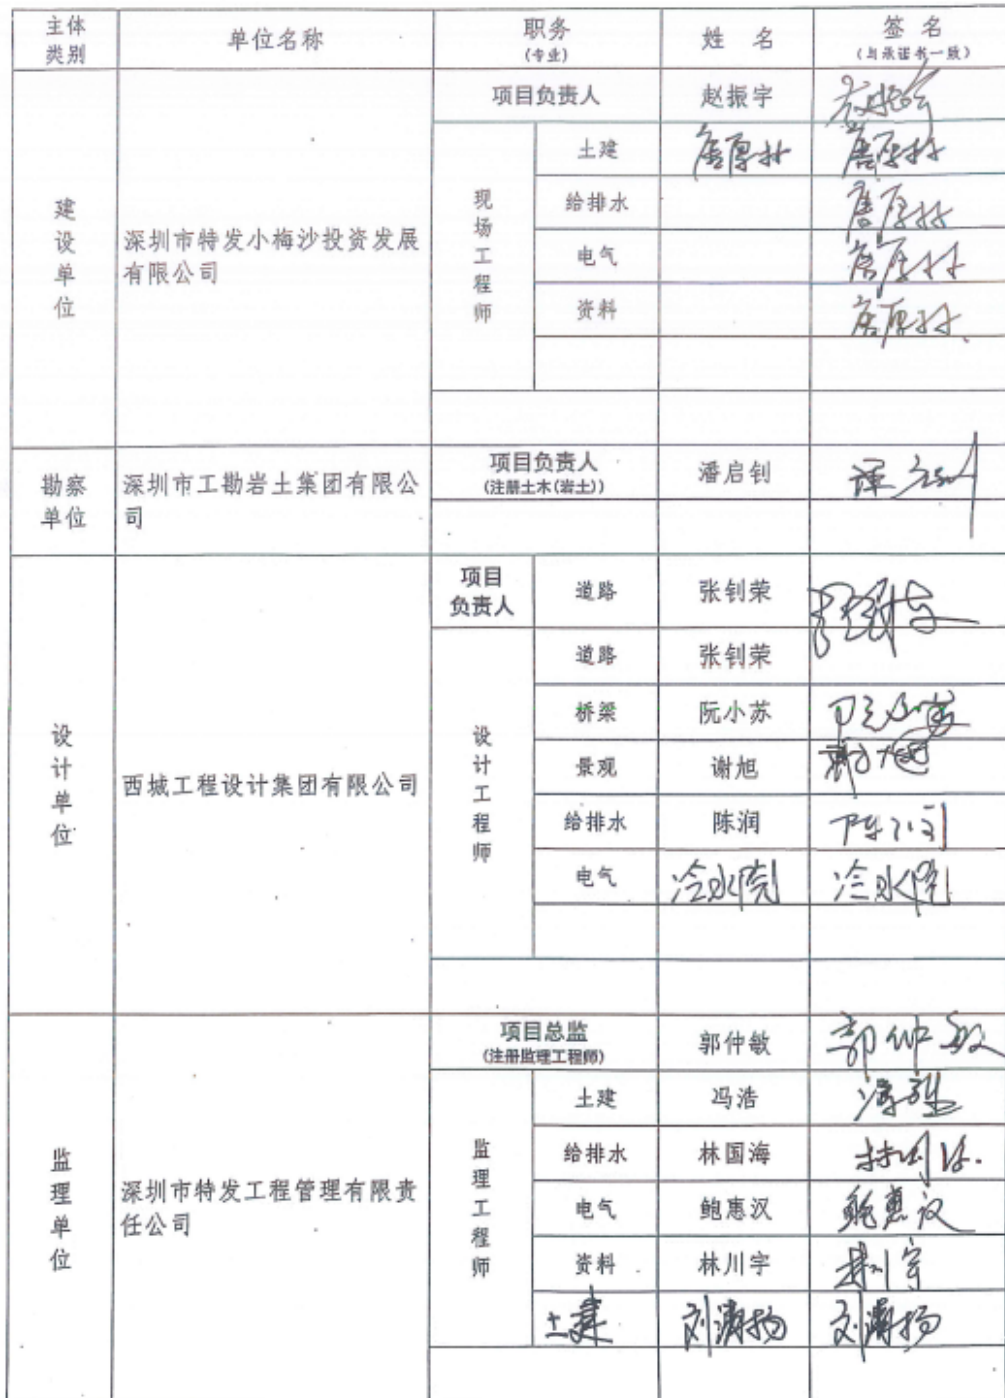 主体类别 单位名称 职务(专业) 姓名 签名(与承诺书一致)
建设单位 深圳市特发小梅沙投资发展有限公司
项目负责人 赵振宇
现场工程师
土建 唐厚林 唐厚林
给排水 唐厚林
电气 唐厚林
资料 唐厚林
勘察单位 深圳市工勘岩土集团有限公司
项目负责人(注册土木(岩土)) 潘启钊
设计单位 西城工程设计集团有限公司
项目负责人 道路 张钊荣
设计工程师
道路 张钊荣
桥梁 阮小苏 阮小苏
景观 谢旭 谢旭
给排水 陈润 陈润
电气
监理单位 深圳市特发工程管理有限责任公司
项目总监(注册监理工程师) 郭仲敏 郭仲敏
监理工程师
土建 冯浩
给排水 林国海 林国海
电气 鲍惠汉 鲍惠汉
资料 林川宇 林川宇
土建